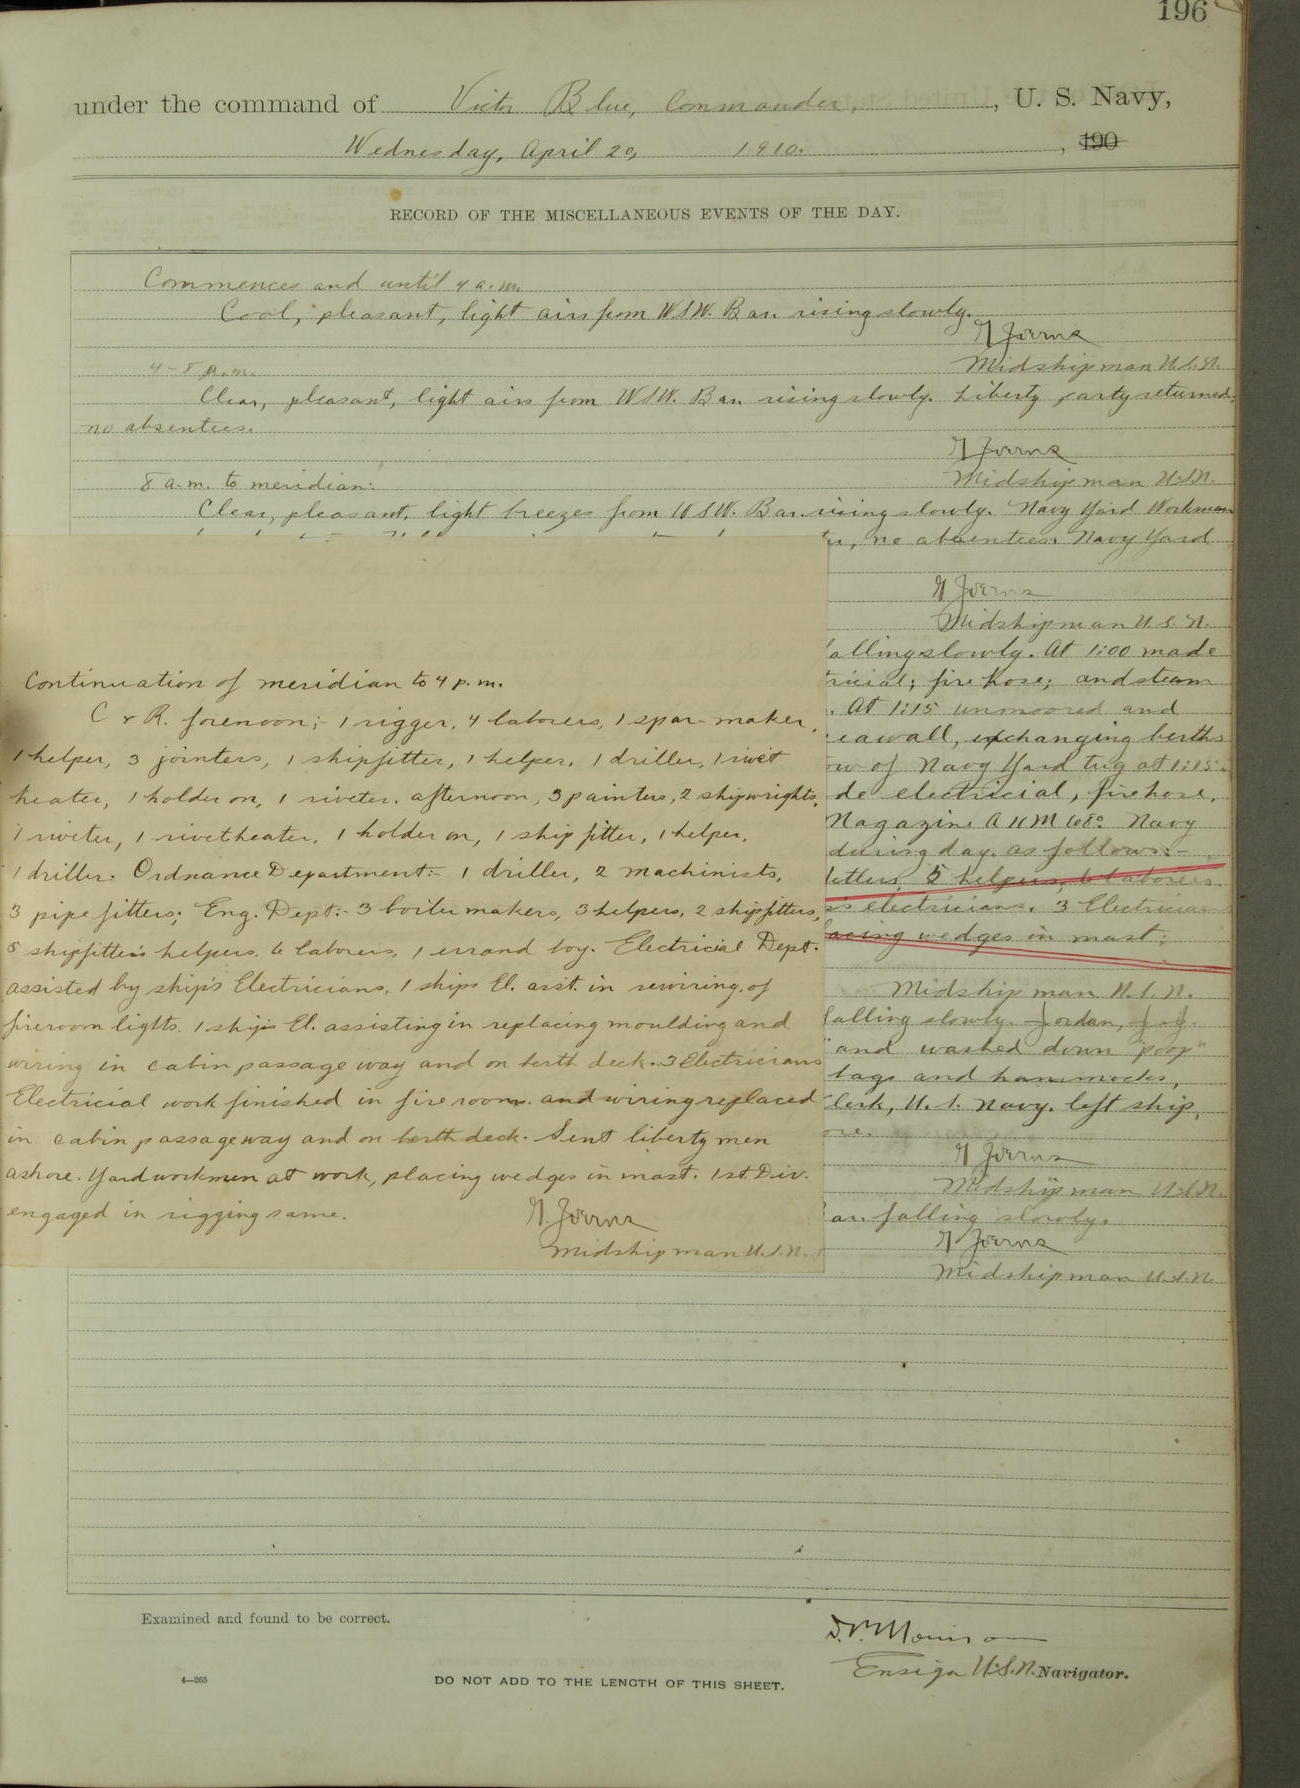 196
under the command of Victor Blue, Commander, , U. S. Navy,
Wednesday, April 20, 1910. , 190
RECORD OF THE MISCELLANEOUS EVENTS OF THE DAY.
Commences and until 4 a.m.
Cool, pleasant, light airs from WSW. Bar. rising slowly.
Midshipman U.S.N.
4-8 a.m.
Clear, pleasant, light airs from WSW. Bar. rising slowly. Liberty party returned;
no absentees.
Midshipman U.S.N.
8 a.m. to meridian:
Clear, pleasant, light breezes from WSW. Bar. rising slowly. Navy Yard Workmen
no absentees. Navy Yard
Midshipman U.S.N.
falling slowly. At 1:00 made
fire hose; and steam
. At 1:15 unmoored and
eawall, exchanging berths
ow of Navy Yard tug at 1:15.
de electricial, fire hose,
Magazine A 11 M 68° Navy
during day. as follows:-
fitters, 5 helpers, 6 laborers.
electricians. 3 Electricians
acing wedges in mast.
Midshipman U.S.N.
falling slowly. Jordan, J.J.
and washed down "poop"
bags and hammocks,
Clerk, U.S. Navy. left ship,
ore.
Midshipman U.S.N.
ar. falling slowly.
Midshipman U.S.N.
Continuation of meridian to 4 p.m.
C & R. forenoon;- 1 rigger, 4 laborers, 1 spar-maker,
1 helper, 3 jointers, 1 shipfitter, 1 helper, 1 driller, 1 rivet
heater, 1 holder on, 1 riveter. afternoon, 3 painters, 2 shipwrights,
1 riveter, 1 rivetheater, 1 holder on, 1 ship fitter, 1 helper,
1 driller. Ordnance Department:- 1 driller, 2 machinists,
3 pipe fitters; Eng. Dept:- 3 boilermakers, 3 helpers, 2 shipfitters,
5 shipfitter's helpers, 6 laborers, 1 errand boy. Electricial Dept.
assisted by ship's Electricians, 1 ships El. asst. in rewiring of
fireroom lights. 1 ship's El. assisting in replacing moulding and
wiring in cabin passage way and on berth deck. 3 Electricians
Electricial work finished in fire room. and wiring replaced
in cabin passageway and on berth deck. Sent liberty men
ashore. Yard workmen at work, placing wedges in mast. 1st. Div.
engaged in rigging same.
Midshipman U.S.N.
Examined and found to be correct.
Ensign U.S.N. Navigator.
4—265
DO NOT ADD TO THE LENGTH OF THIS SHEET.